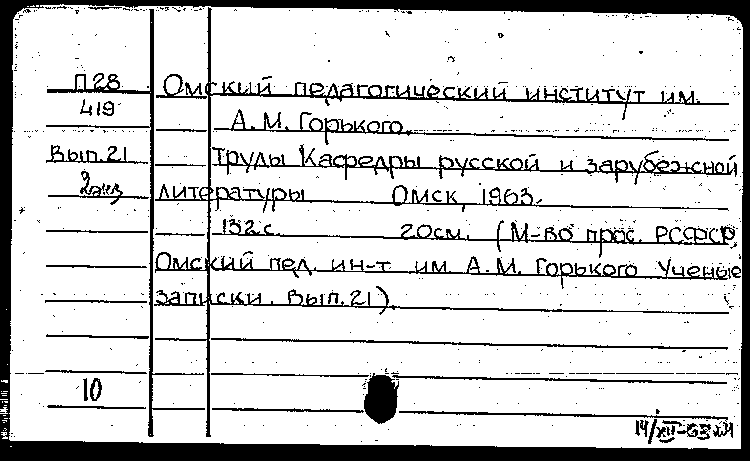 П28 Омский педагогический институт им.
419 А.М. Горького.
Вып.21 Труды Кафедры русской и зарубежной
2экз литературы Омск, 1963.
132с. 20см. (М-во прос. РСФСР,
Омский пед. ин-т им. А.М. Горького Ученые
записки. Вып.21).
10
14/XII-63